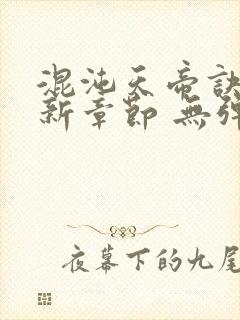 混沌天帝訣
新章節 無彈
夜幕下的九尾